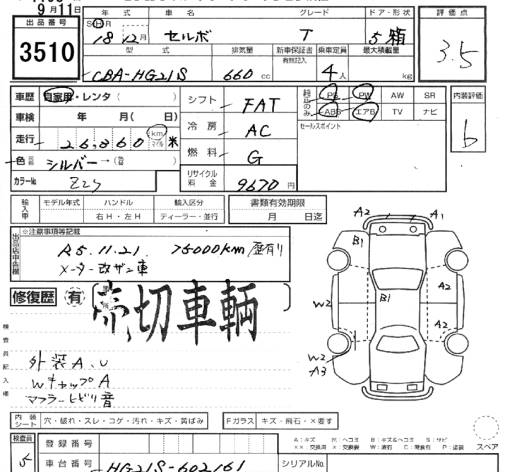 9月11日
出品番号 年式 車名 グレード ドア・形状 評価点
3510 SH 18年12月 セルボ T 5 箱 3.5
型式 排気量 新車保証書 乗車定員 最大積載量
有無記入
CBA-HG21S 660 cc 4人 kg
車歴 自家用・レンタ( ) シフト FAT PS PW AW SR 内装評価
車検 年 月( 日) 冷房 AC ABS エアB TV ナビ b
走行 26,860 km 米 セールスポイント
色 シルバー → 燃料 G
カラーNo. Z2S リサイクル料金 9670円
輸入車 モデル年式 ハンドル 輸入区分 書類有効期限
右H・左H ディーラー・並行 月 日迄
※注意事項等記載
R5.11.21 75000km 歴有り
メーター改ザン車
修復歴 有
売切車輌
検査員記入欄
外装A,U
WキャップA
マフラービビリ音
A2 A1
B1 A2
W2 B1 A2
A2
W2
A3
内装シート 穴・破れ・スレ・コゲ・汚れ・キズ・黄ばみ Fガラス キズ・飛石・×要す スペア
検査員 5 登録番号
車台番号 HG21S-602161 シリアルNo.